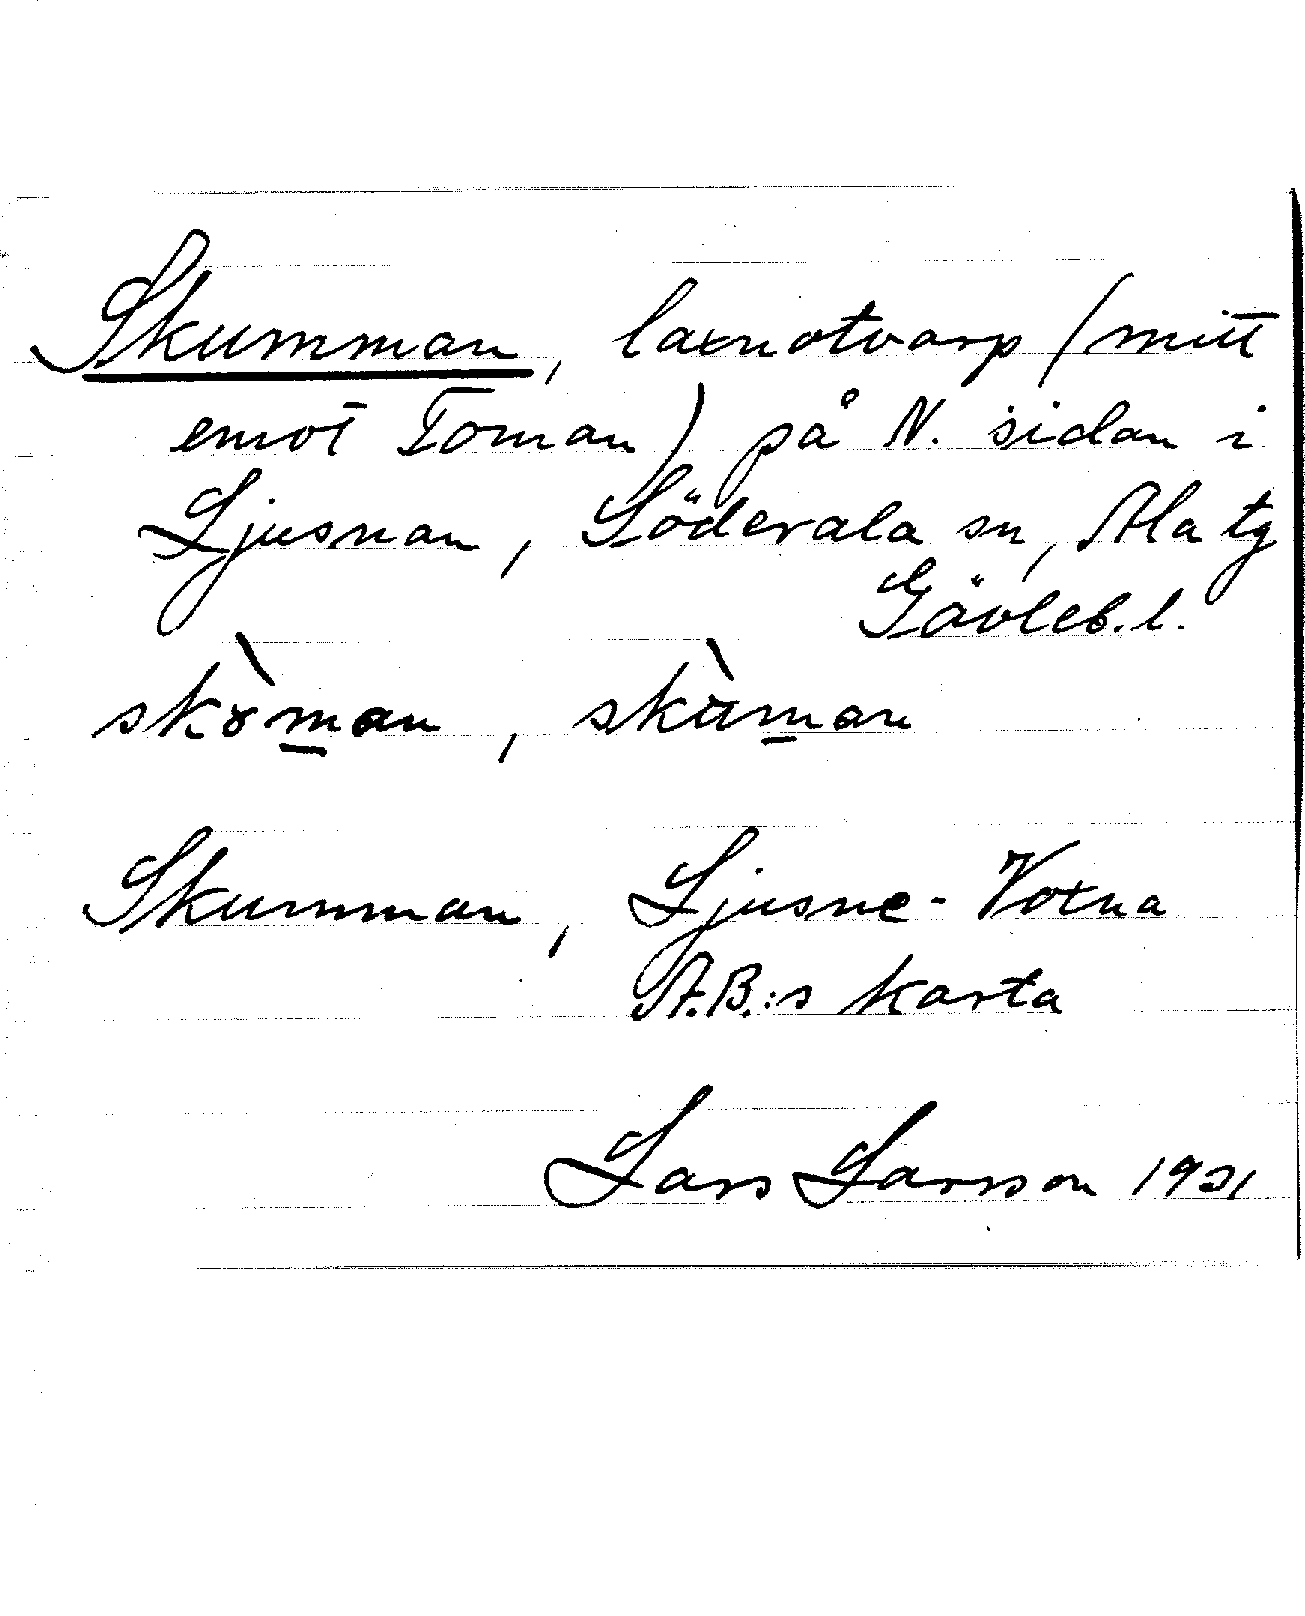 Skumman, laxnotvarp (mitt
emot Toman) på N. sidan i
Ljusnan, Söderala sn, Ala tg
Gävleb. l.
skò̀man, skùman
Skumman, Ljusne-Voxna
A.B.:s karta
Lars Larsson 1921